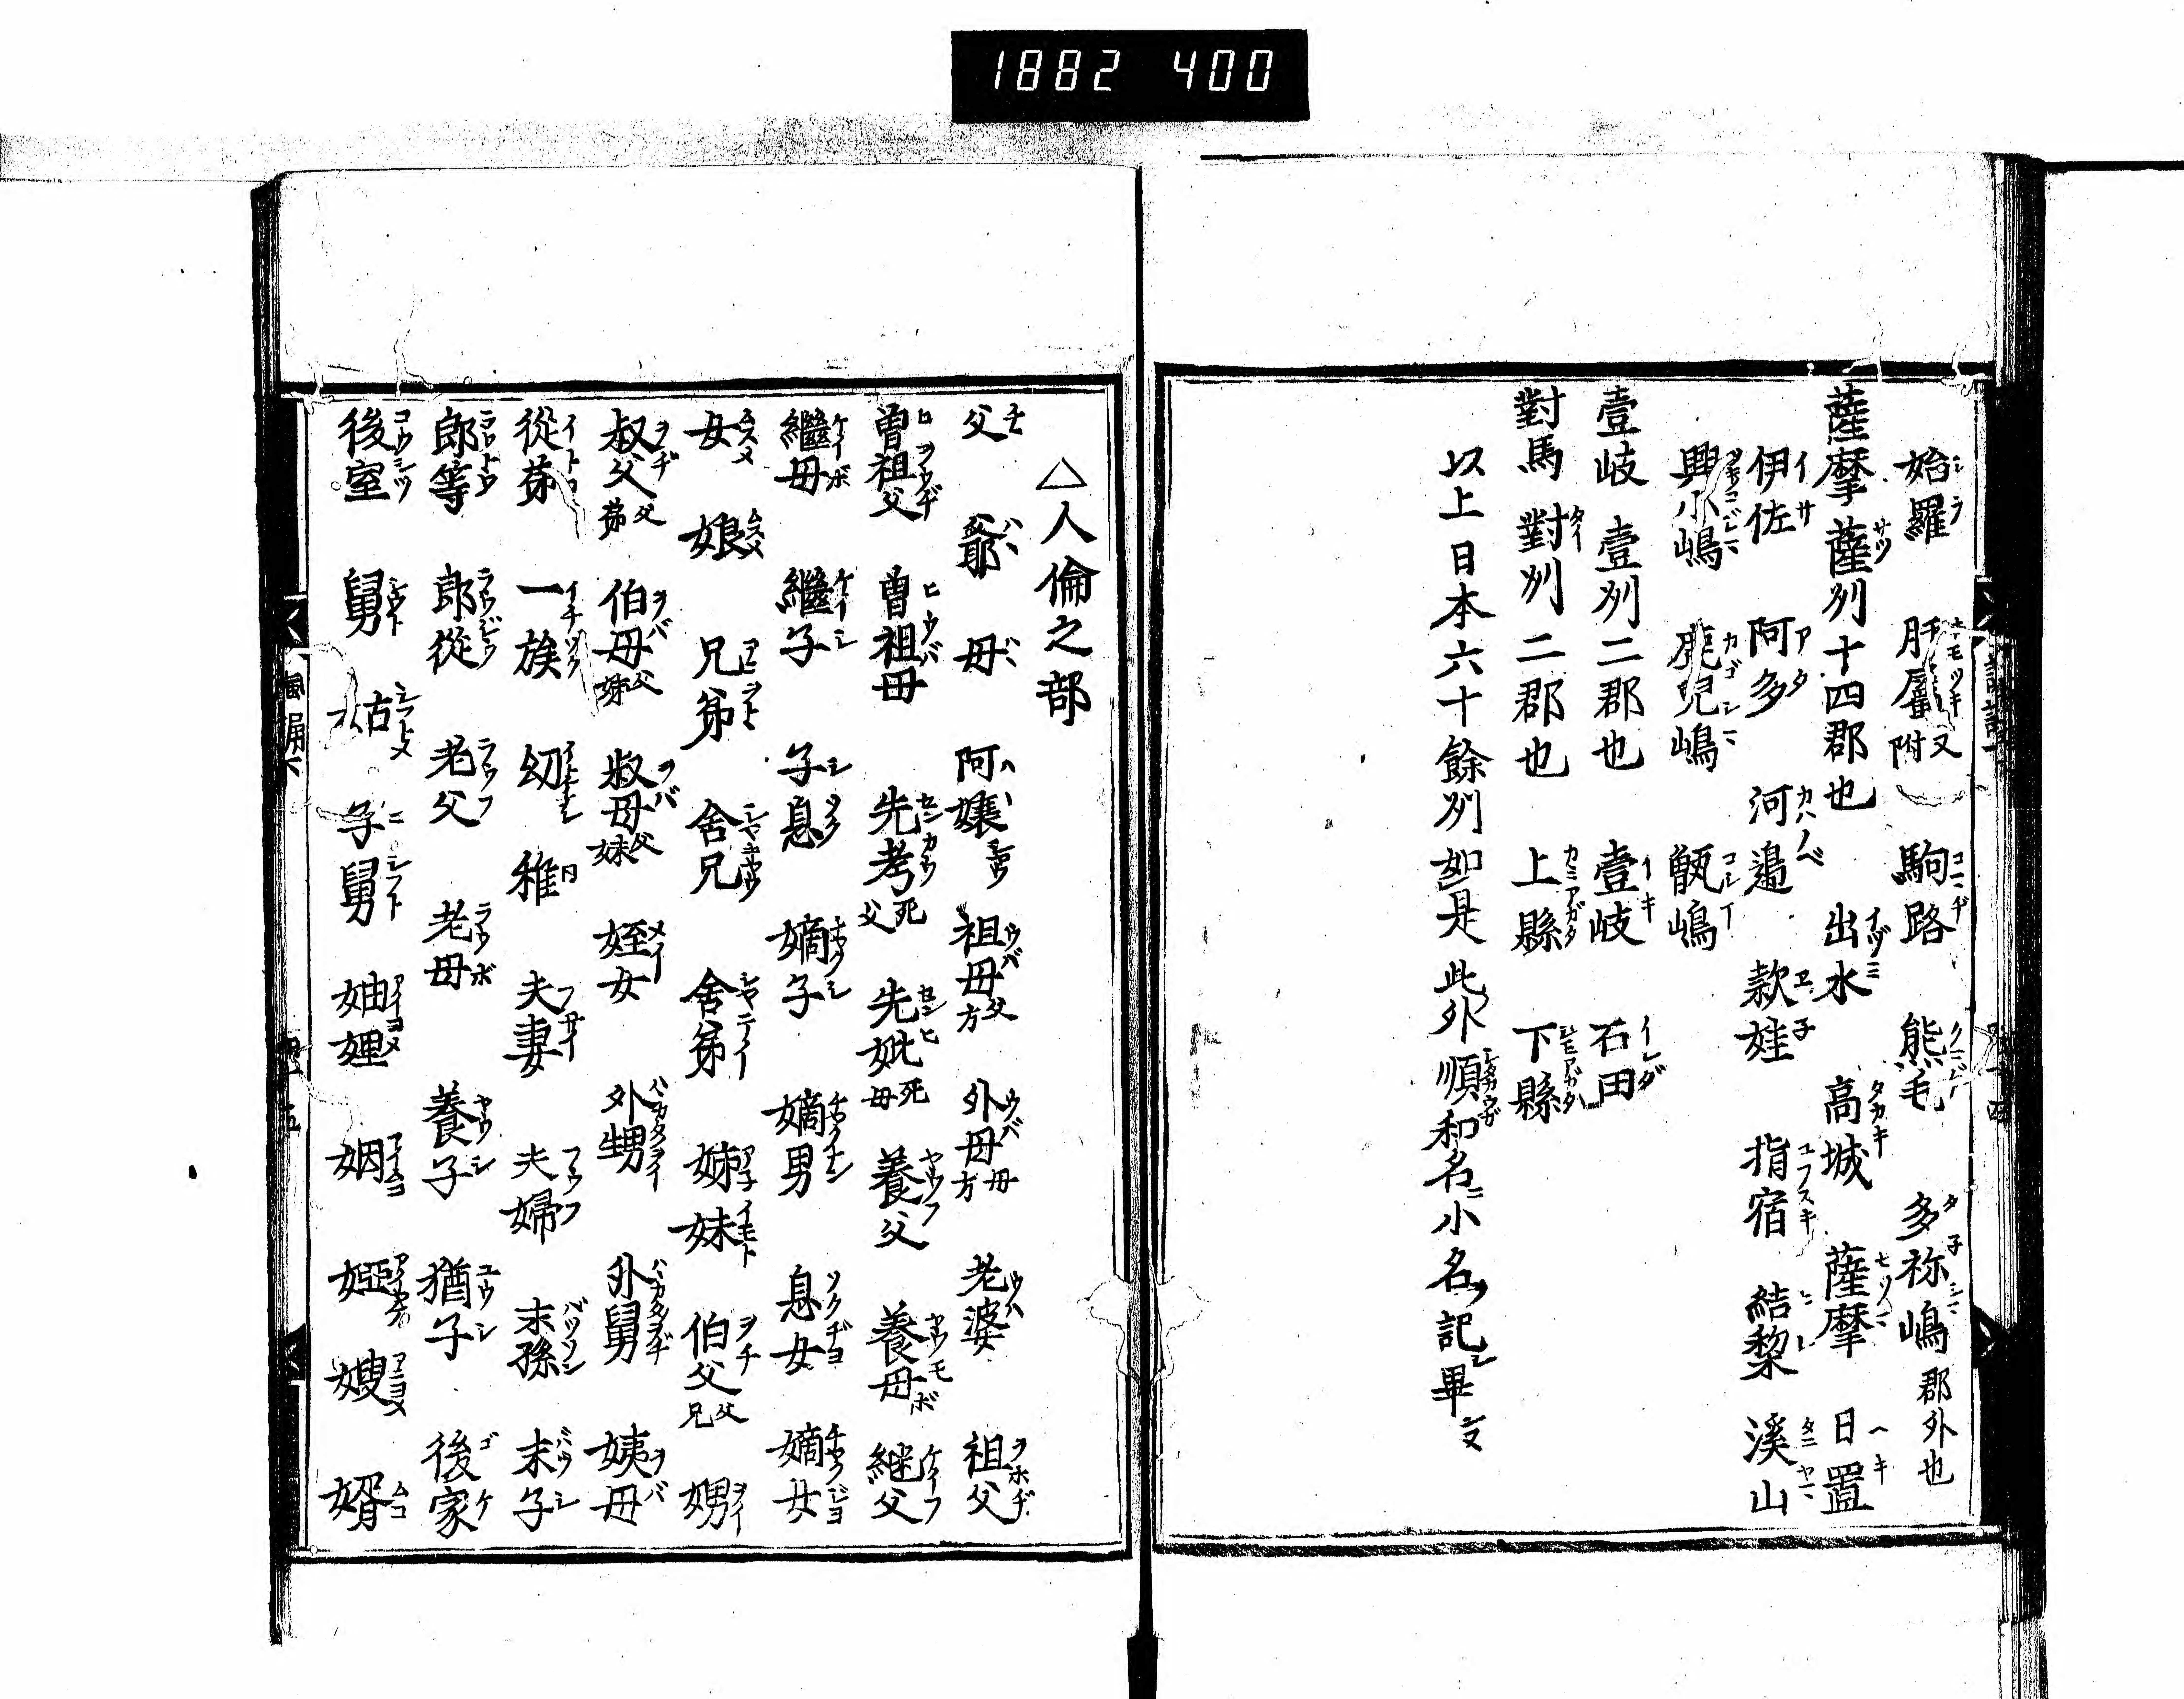 1882 400
始羅 肝屬 又附 駒路 熊毛 多祢嶋 郡外也
薩摩 薩刕十四郡也 出水 高城 薩摩 日置
伊佐 阿多 河邉 款娃 指宿 結黎 溪山
興小嶋 鹿兒嶋 甑嶋
壹岐 壹刕二郡也 壹岐 石田
對馬 對刕二郡也 上縣 下縣
以上日本六十餘刕如是此外順和名ニ小名ヲ記シ畢
△人倫之部
父 爺 母 阿嬢 祖母 父方 外母 母方 老婆 祖父
曽祖父 曽祖母 先考 死父 先妣 死母 養父 養母 継父
繼母 繼子 子息 嫡子 嫡男 息女 嫡女
女 娘 兄弟 舎兄 舎弟 姉妹 伯父 父兄 甥
叔父 父弟 伯母 父姉 叔母 父妹 姪女 外甥 外舅 姨母
從弟 一族 幼稚 夫妻 夫婦 末孫 末子
郎等 郎從 老父 老母 養子 猶子 後家
後室 舅 姑 子舅 妯娌 姻 婭 嫂 婿